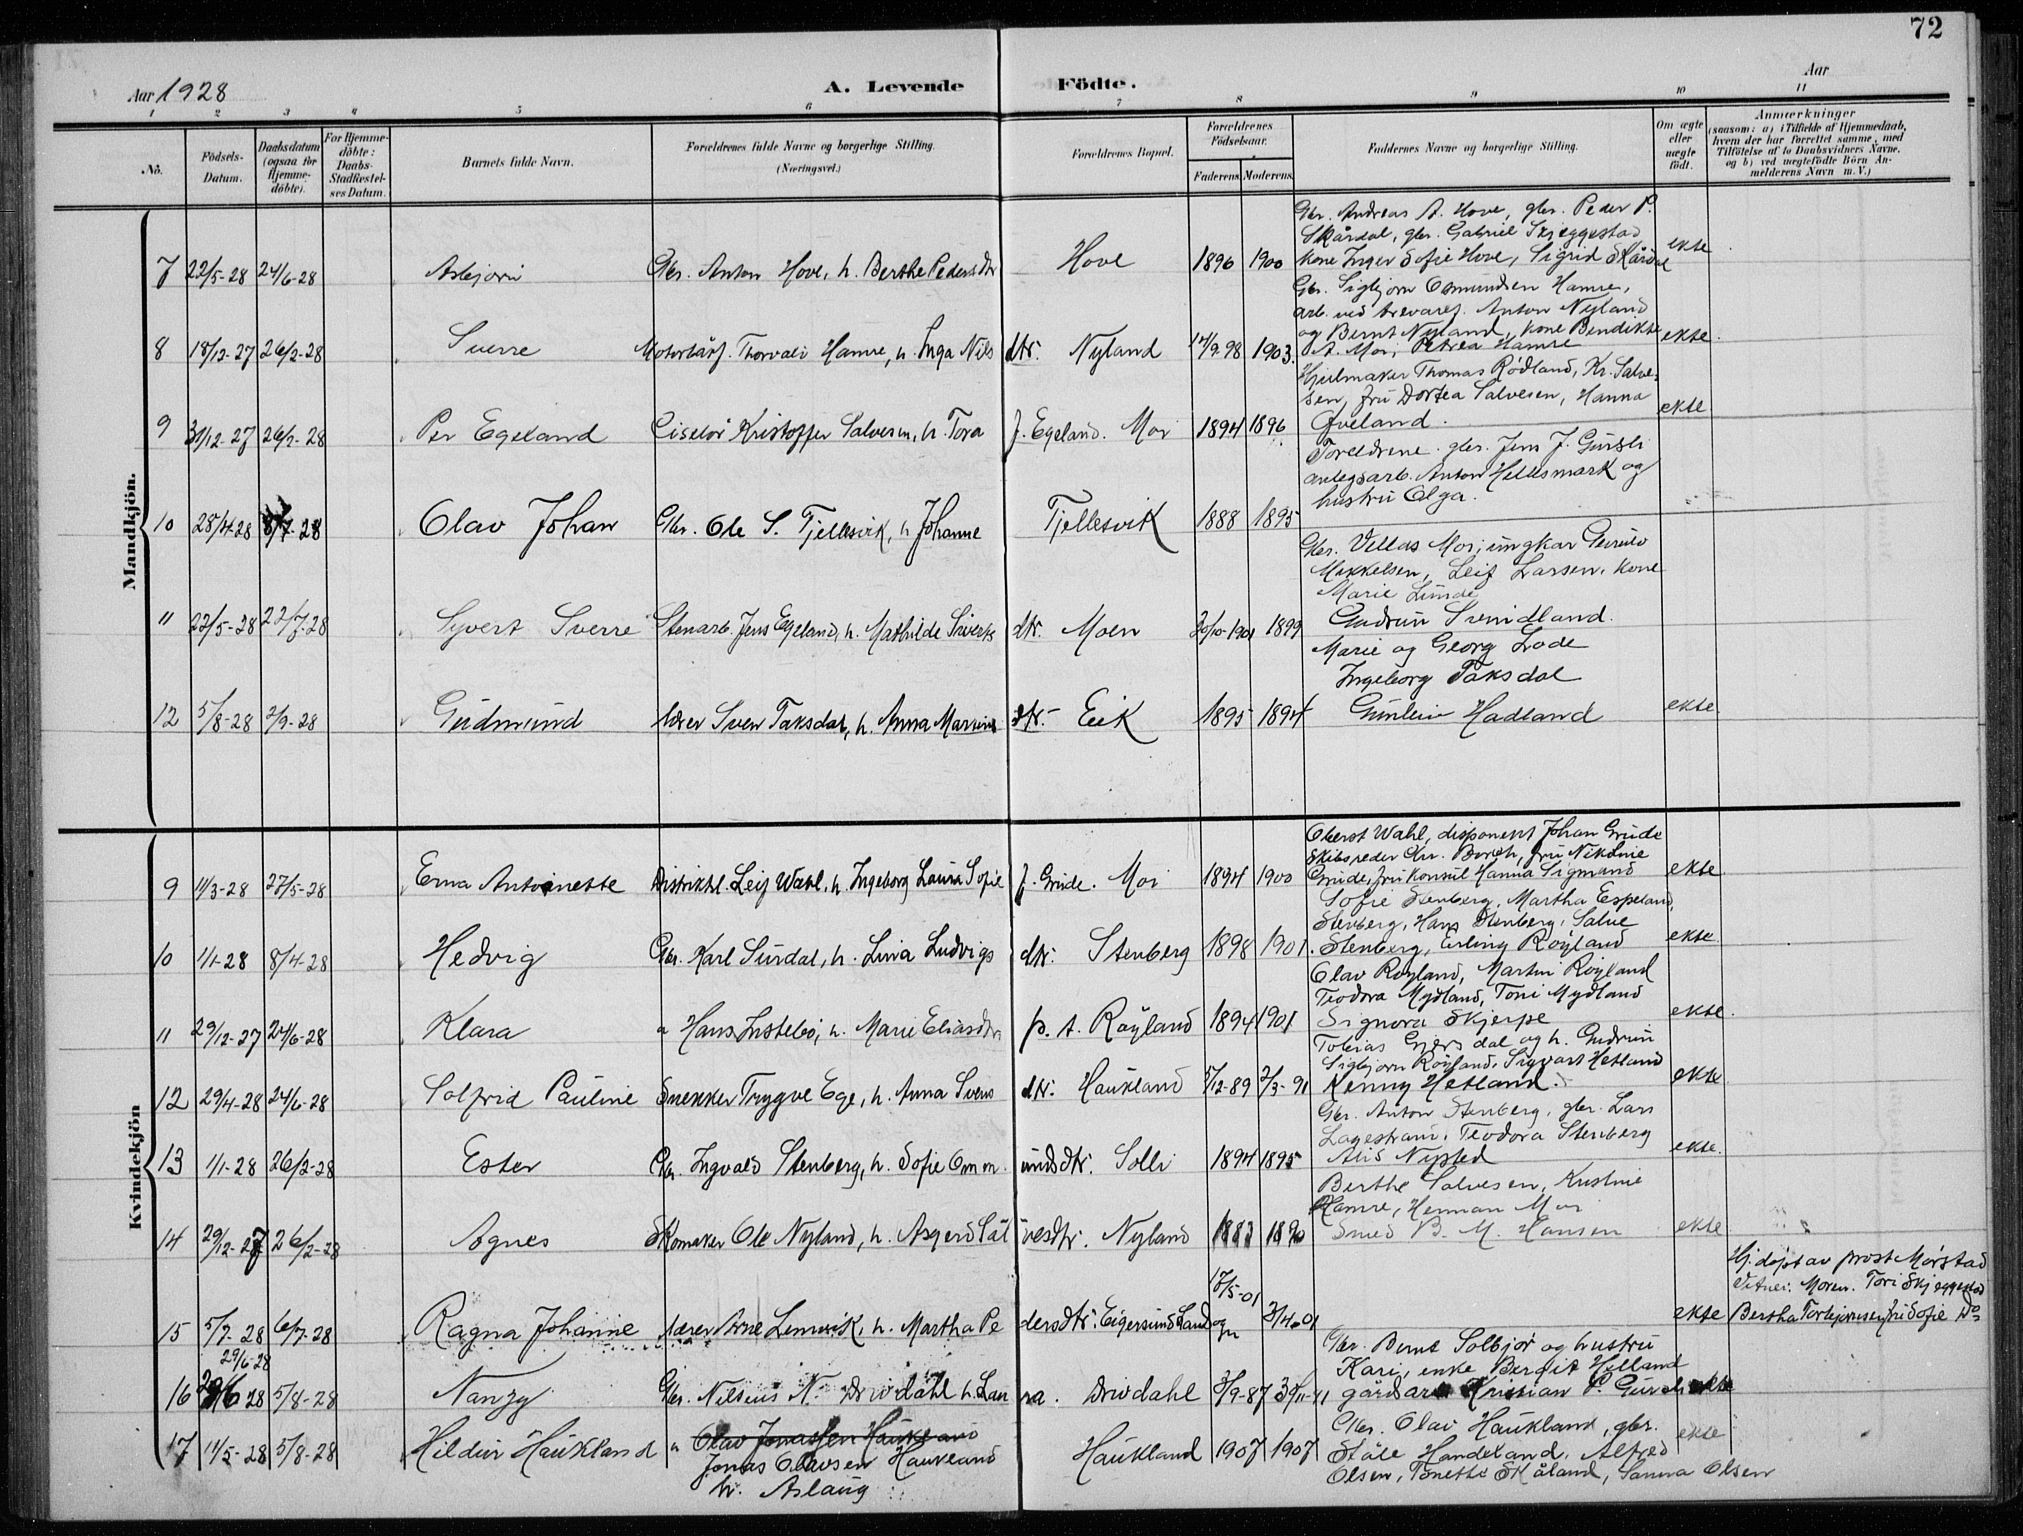 72
Aar 1928
A. Levende Födte.
Aar
1 2 3 4 5 6 7 8 9 10 11
No.
Födsels-Datum.
Daabsdatum (ogsaa for Hjemme-döbte).
For Hjemme-döbte: Daabs-Stadfestel-ses Datum.
Barnets fulde Navn.
Forældrenes fulde Navne og borgerlige Stilling. (Næringsvei.)
Forældrenes Bopæl.
Forældrenes Födselsaar.
Faderens. Moderens.
Faddernes Navne og borgerlige Stilling.
Om ægte eller uægte födt.
Anmærkninger
(saasom: a) i Tilfælde af Hjemmedaab,
hvem der har forrettet samme, med
Tilföielse af to Daabsvidners Navne,
og b) ved uægtefödte Börn An-
melderens Navn m.V.)
Mandkjön.
Gbr. Andreas A. Hove, gbr. Peder P.
Skårdal, gbr. Gabriel Skjeggestad
7 22/5-28 24/6-28 Asbjørn Gbr. Anton Hove, h. Berthe Pedersdtr Hove 1896 1900 kone Inger Sofie Hove, Sigrid Skårdal ekte
Gbr. Sigbjørn Osmundsen Hamre,
arb. ved trevaref. Anton Nyland
og Bernt Nyland, kone Bendikte
8 18/12-27 26/2-28 Sverre Motorkårf. Thorvald Hamre, h. Inga Nils dtr. Nyland 14/9.98 1903. A. Moi, Petrea Hamre ekte.
Hjulmaker Thomas Rødland, Kr. Salve-
sen, fru Dortea Salvesen, Hanna
9 31/12-27 26/2-28 Per Egeland Ciselør Kristoffer Salvesen, h. Tora f. Egeland. Moi 1894 1896 Øveland. ekte
Foreldrene. gbr. Jens J. Gursli
anlegsarb. Anton Hellesmark og
hustru Olga.
10 28/4-28 8/7-28 Olav Johan Gbr. Ole S. Tjellesvik, h Johanne Tjellesvik 1888 1895
Gbr. Vellas Moi, ungkar
Mikkelsen, Leif Larsen, kone
Marie Lunde
11 22/5-28 22/7-28 Syvert Sverre Stenarb. Jens Egeland, h. Mathilde Siverts dtr. Moen 20/10-1901 1899 Gudrun Svindland.
Marie og Georg Lode
Ingeborg Taksdal
12 5/8-28 2/9-28 Gudmund lærer Sven Taksdal, h. Anna Martins dtr.- Eik 1895 1894 Gunlein Hadland ekte.
Kvindekjön
Oberst Wahl, disponent Johan Grude
Skibsreder Chr. Borch, fru Nikoline
9 11/3-28 27/5-28 Erna Antoinette Distriktl. Leif Wahl, h. Ingeborg Laura Sofie f. Grude. Moi 1894 1900 Grude, fru Konsul Hanna Sigmund ekte
Sofie Stenberg, Martha Espeland,
Stenberg, Hans Stenberg, Salve
10 1/1-28 8/4-28 Hedvig Gbr. Karl Surdal, h. Lina Ludvigs dtr. Stenberg 1898 1901. Stenberg, Erling Røyland ekte.
Olav Røyland, Martin Røyland
Teodora Mydland, Toni Mydland
11 29/12-27 24/6-28 Klara " Hans Instebø, h. Marie Eliasdtr p. t. Røyland 1894 1901 Signora Skjerpe ekte.
Tobias Gyersdal og h. Gudrun
Sigbjørn Røyland, Sigvart Hetland
12 29/4-28 24/6-28 Solfrid Pauline Snekker Trygve Ege, h. Anna Svens dtr. Haukland 5/12-89 2/3-91 Kenny Hetland. ekte
Gbr. Anton Stenberg, gbr. Lars
Lagestrand, Teodora Stenberg
13 1/1-28 26/2-28 Ester Gbr. Ingvald Stenberg, h. Sofie Omm undsdtr. Solli 1894 1895 ekte.
Berthe Salvesen, Kristine
Hamre, Herman Moi
14 29/12-27 26/2-28 Agnes Skomaker Ole Nyland, h. Asgerd Sal vesdtr. Nyland 1883 1890 Smed B. M. Hansen ekte
Hj. døpt av prost Mørstad
Vitner: Moren. Tori Skjeggestad
15 5/7-28 6/7-28 Ragna Johanne lærer Arne Lenevik, h. Martha Pe dersdtr. Eigersund Landogn 17/5-01 3/4-01 ekte Bertha Torbjørnsen, fru Sofie Do
29/6-28
Gbr. Bernt Solbjør og hustru
Kari, enke Bergit Helland
16 28 5/8-28 Nanzy Gbr. Nilseus N. Drivdahl h. Lau ra. Drivdahl 3/9-87 30/11-91 gårdarb. Kristian P. Gursli ekte
Gbr. Olav Haukland, gbr.
17 11/5-28 5/8-28 Hildur Haukland " Olav Jonassen Haukland Haukland 1907 1907 Ståle Handeland, Alfred ekte
Jonas Olavsen Haukland
h. Aslaug
Olsen, Tonette Skåland, Sanna Olsen